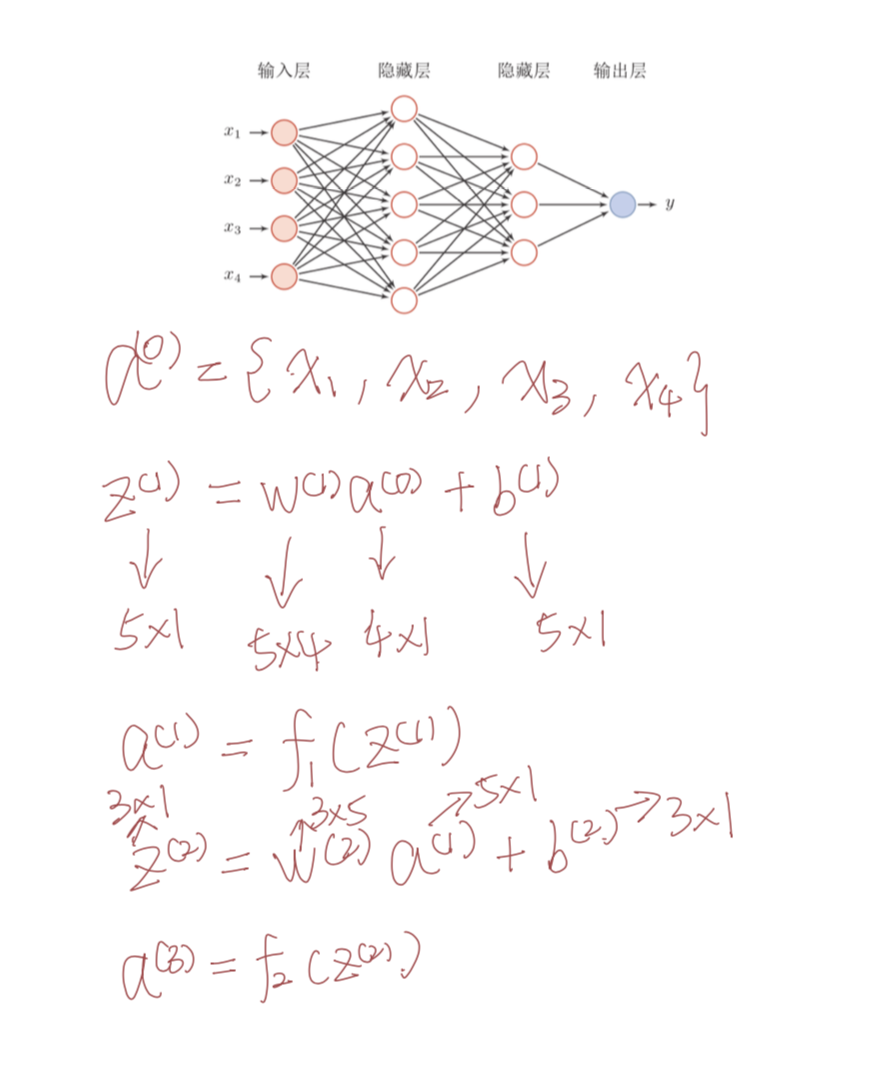 输入层 隐藏层 隐藏层 输出层
x₁
x₂
x₃
x₄
y
a⁽⁰⁾ = {x₁, x₂, x₃, x₄}
z⁽¹⁾ = w⁽¹⁾a⁽⁰⁾ + b⁽¹⁾
5×1 5×4 4×1 5×1
a⁽¹⁾ = f₁(z⁽¹⁾)
3×1 3×5 5×1 3×1
z⁽²⁾ = w⁽²⁾ a⁽¹⁾ + b⁽²⁾
a⁽³⁾ = f₂(z⁽²⁾)